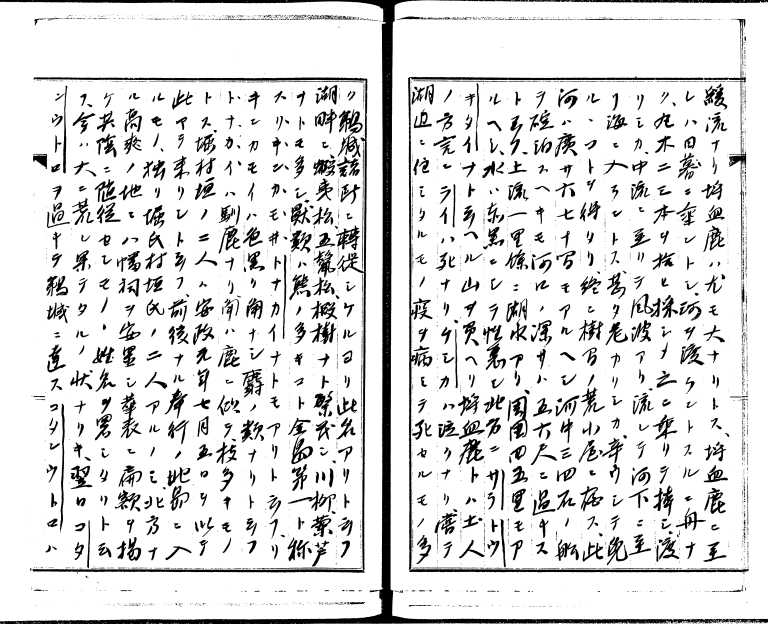 緩流ナリ塒血鹿ハ尤モ大ナリトス、塒血鹿ニ至
レハ日暮ニ垂ントシ、河ヲ渡ラントスルニ舟ナ
ク、丸木二三本ヲ拾ヒ採シメ之ニ乗リテ棹シ、渡
リシカ中流ニ至リテ風波アリ、流レテ河下ニ至
リ海ニ入ラントス甚タ危カリシカ辛ウシテ免
ル、コトヲ得タリ終ニ樹写ノ荒小屋ニ宿ス、此
河ハ広サ六七十写モアルヘシ河中三四石ノ船
ヲ碇泊スヘキモ河口ノ深サハ五六尺ニ過キス
ト云フ、土流一里余ニ湖水アリ、周囲四五里モア
ルヘシ、水ハ赤黒ニシテ性悪シ此名ニサラトウ
キタイナト云ヘル山ヲ負ヘリ塒血鹿トハ土人
ノ方言ニライハ死ナリケシカハ泣リナリ嘗テ
湖辺ニ住ミタルモノ疫ヲ病ミテ死セルモノ多
ク鵜城諸所ニ転従シケルヨリ此名アリト云フ
湖畔ニ蝦夷松五鬣松椴樹ナト繁茂シ川柳葉芦
ナトモ多シ獣類ハ熊ノ多キコト全島第一ト称
スリキンカモ井トナカイナトモアリト云フリ
キンカモイハ色黒ク角ナシ麝ノ類ナリト云フ
トナカイハ馴鹿ナリ角ハ鹿ニ似テ枝多キモノ
トス堀村垣ノ二人ハ安政元年七月五日ヲ以テ
此アラ来リシト云フ前後ナル奉行ノ此島ニ入
ルモノ、独リ堀氏村垣氏ノ二人アルノミ、北方ナ
ル高爽ノ地ニハ幡祠ヲ安置シ華表ニ扁額ヲ揚
ケ其陰ニ随従セシモノ、姓名ヲ署シタリト云
ス、今ハ大ニ荒レ果テタルノ状ナリキ、翌日コタ
ンウトロヲ過キテ鵜城ニ達スコタンウトロハ